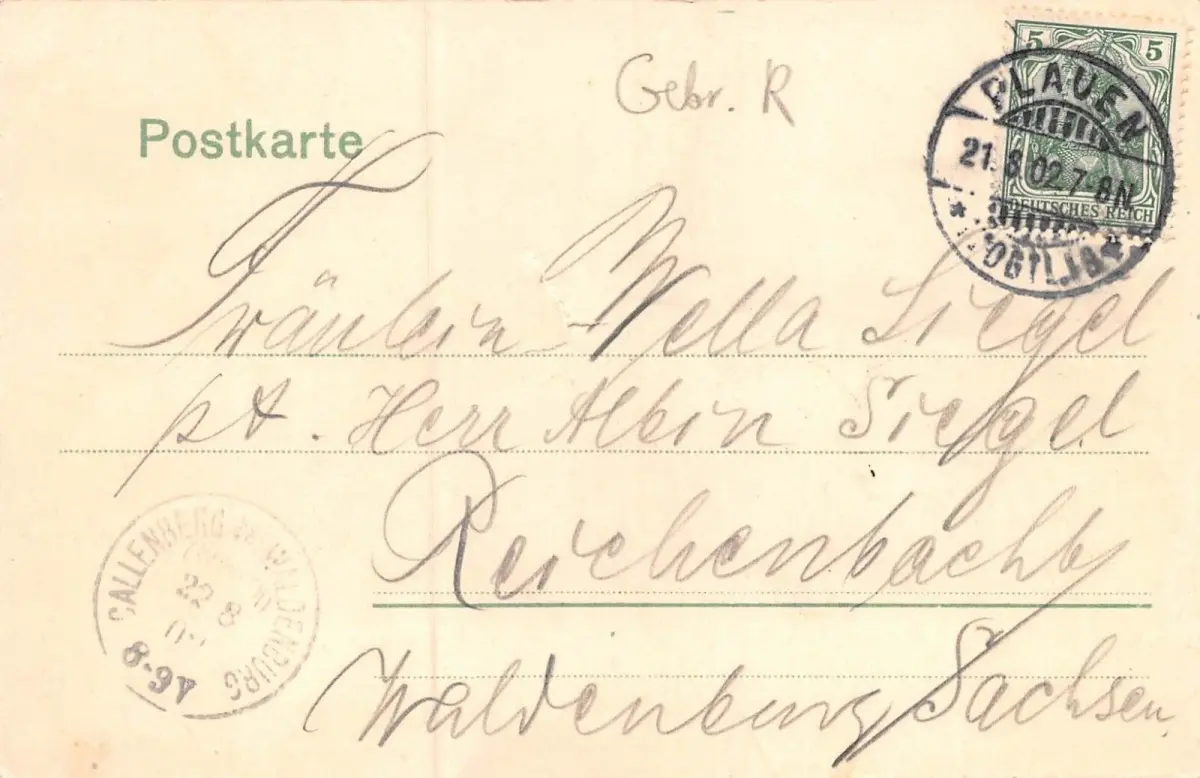 Gebr. R
5 5
DEUTSCHES REICH
PLAUEN
21.8.02.7-8N.
VOGTL.
Postkarte
Fräulein Wella Siegel
pt. Herr Albin Siegel
Reichenbach b/
Waldenburg Sachsen.
CALLENBERG WALDENBURG
22 8
8-9V